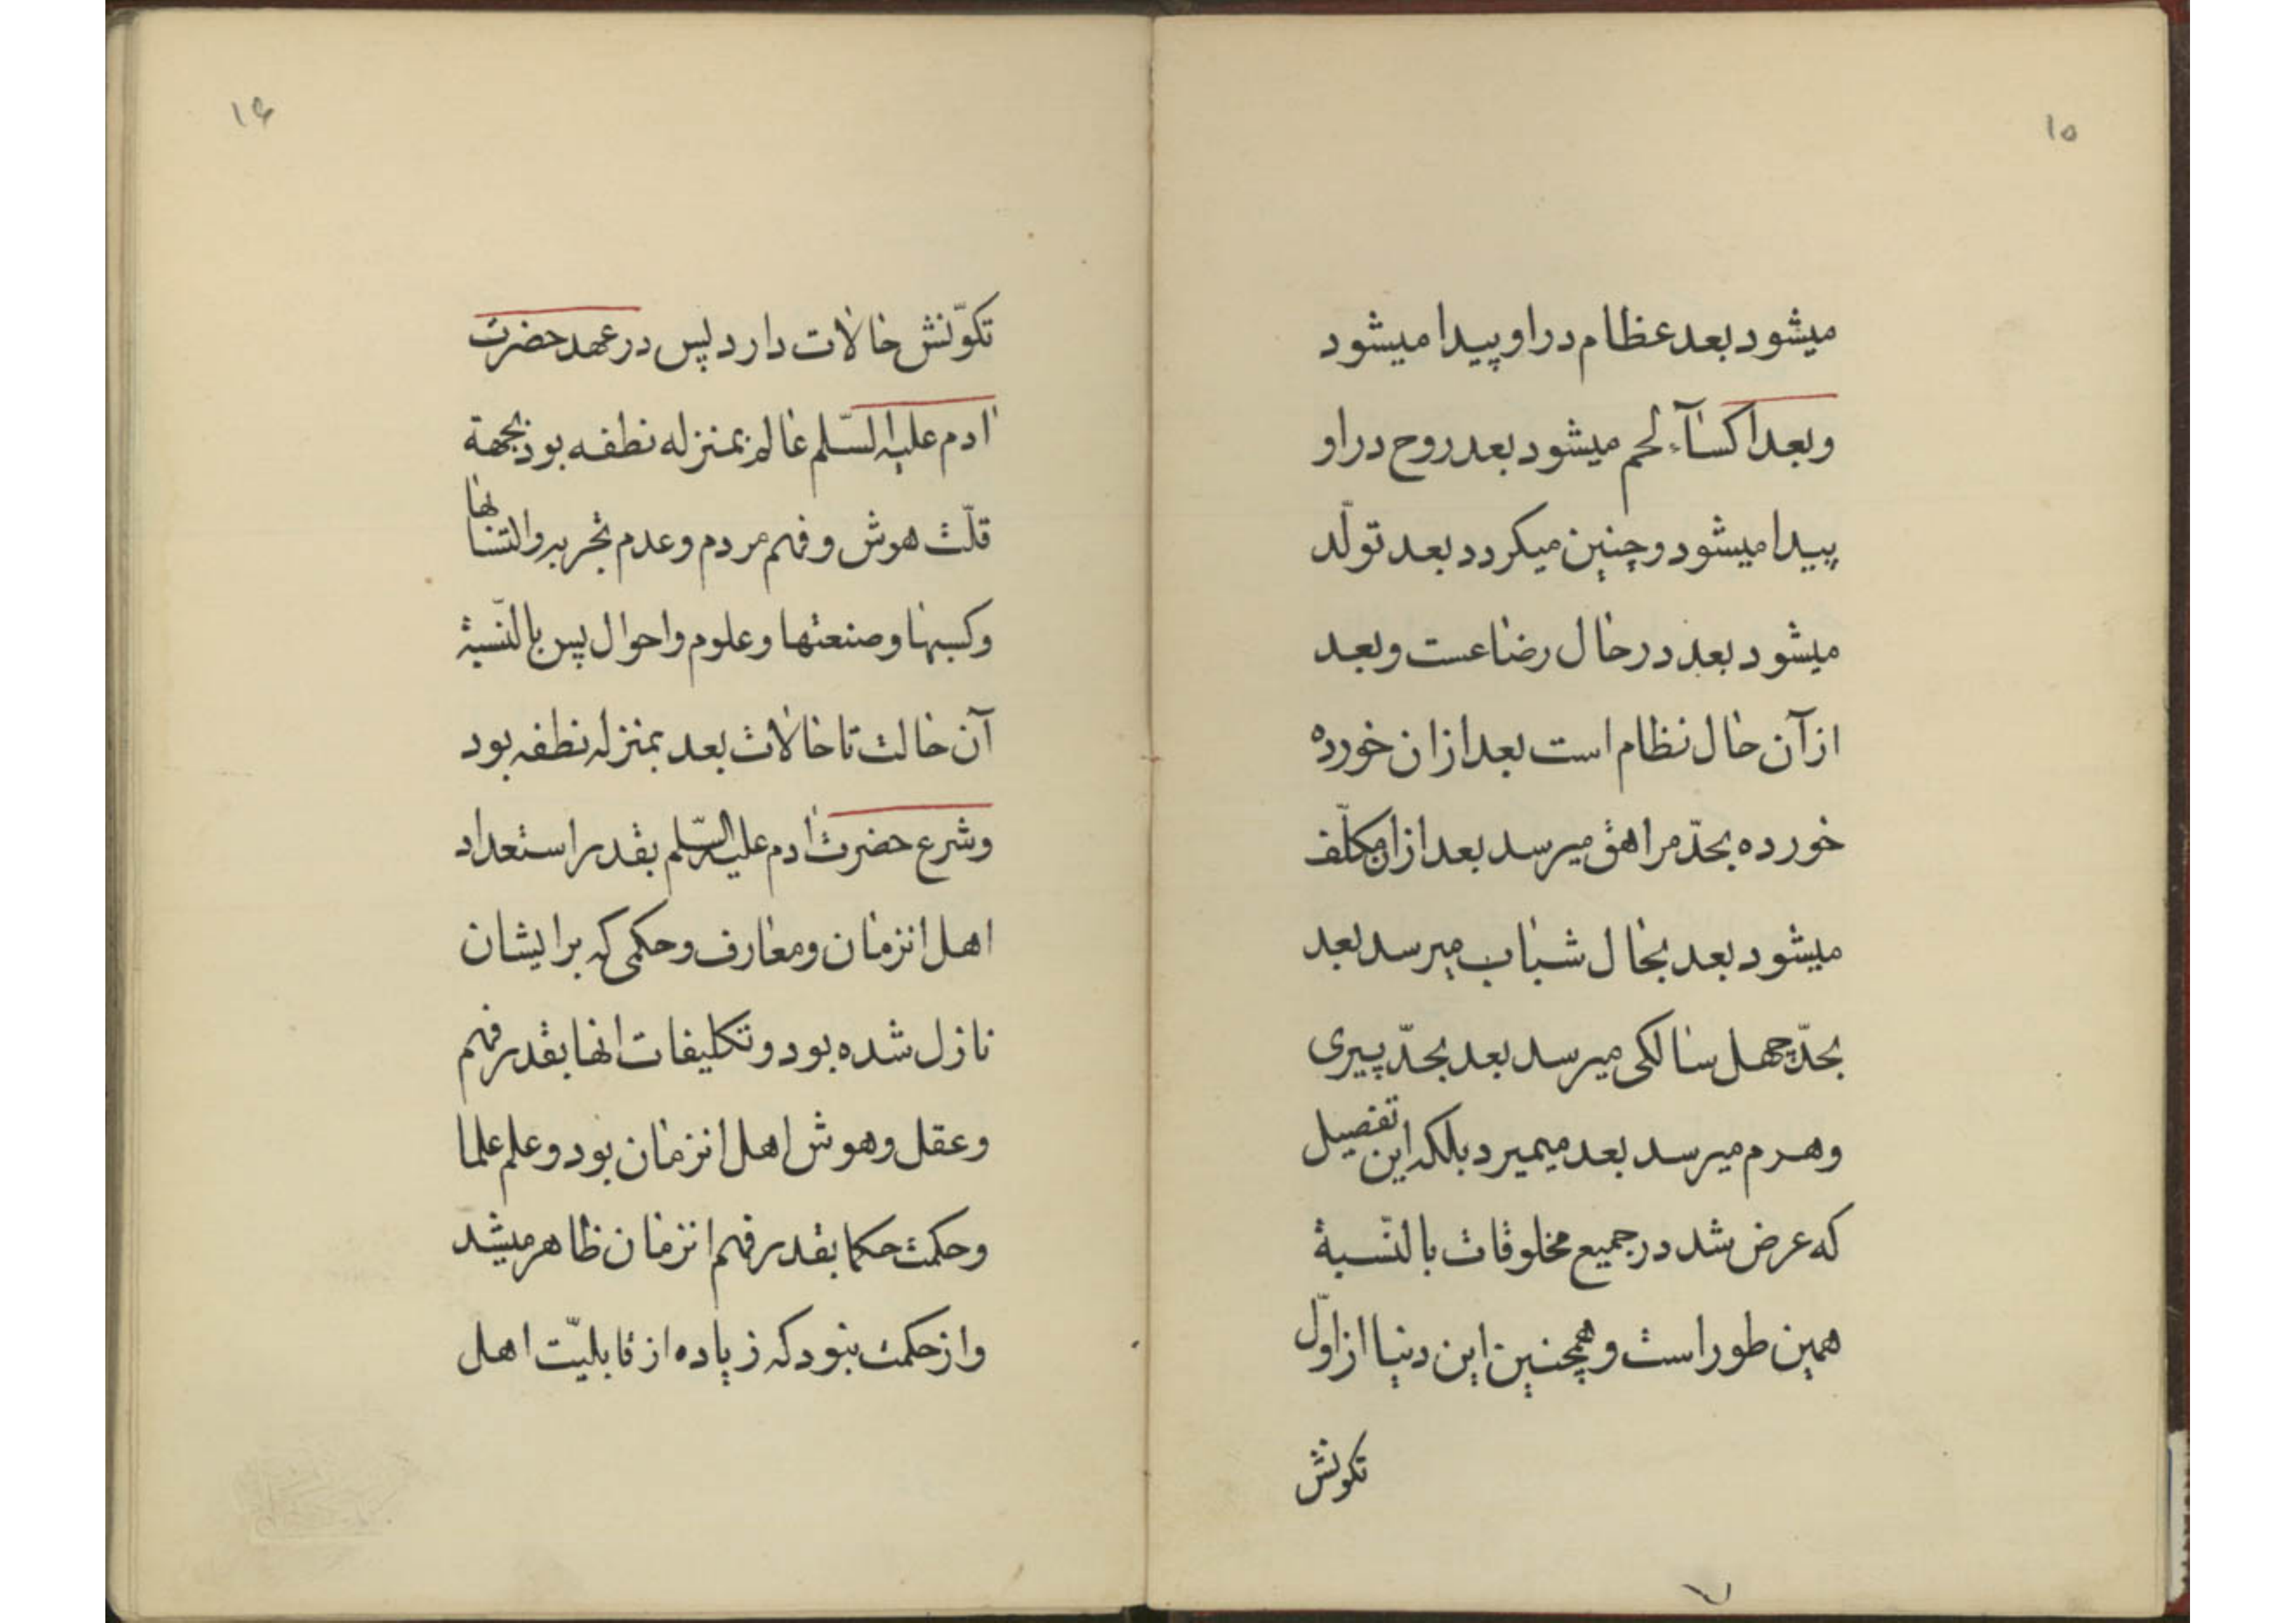 ۱۵
میشود بعد عظام در او پیدا میشود
و بعد اکسآء لحم میشود بعد روح در او
پیدا میشود و چنین میکردد بعد تولّد
میشود بعد در حال رضاعست و بعد
از آن حال نظام است بعد از ان خورده
خورده بحدّ مراهق میرسد بعد از ان مکلّف
میشود بعد بحال شباب میرسد بعد
بحدّ چهل سالکی میرسد بعد بحدّ پیری
و هرم میرسد بعد میمیرد بلکه این تفصیل
که عرض شد در جمیع مخلوقات بالنّسبة
همین طور است و همچنین این دنیا از اوّل
تکونش
۱۶
تکوّنش حالات دارد پس در عهد حضرت
ادم علیه السّلم عالم بمنزله نطفه بود بجهة
قلّت هوش و فهم مردم و عدم تجربه و
و کسبها و صنعتها و علوم و احوال پس بالنّسبة
آن حالت تا حالات بعد بمنزله نطفه بود
و شرع حضرت ادم علیه السّلم بقدر استعداد
اهل انزمان و معارف و حکمی که برایشان
نازل شده بود و تکلیفات انها بقدر فهم
و عقل و هوش اهل انزمان بود و علم علما
و حکمت حکما بقدر فهم انزمان ظاهر میشد
و از حکمت نبود که زیاده از قابلیّت اهل